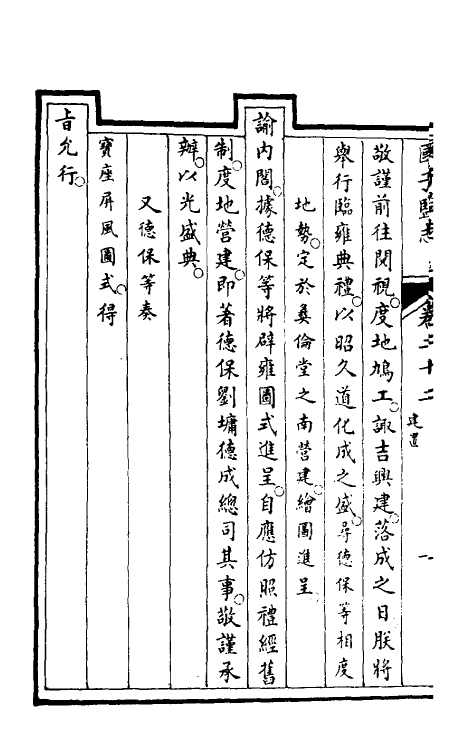 國子監志 卷二十二 建置 一
敬謹前往閱視度地鳩工諏吉興建落成之日朕將
舉行臨雍典禮以昭久道化成之盛尋德保等相度
地勢定於彝倫堂之南營建繪圖進呈
諭內閣據德保等將辟雍圖式進呈自應仿照禮經舊
制度地營建即著德保劉墉德成總司其事敬謹承
辦以光盛典
又德保等奏
寶座屏風圖式得
旨允行